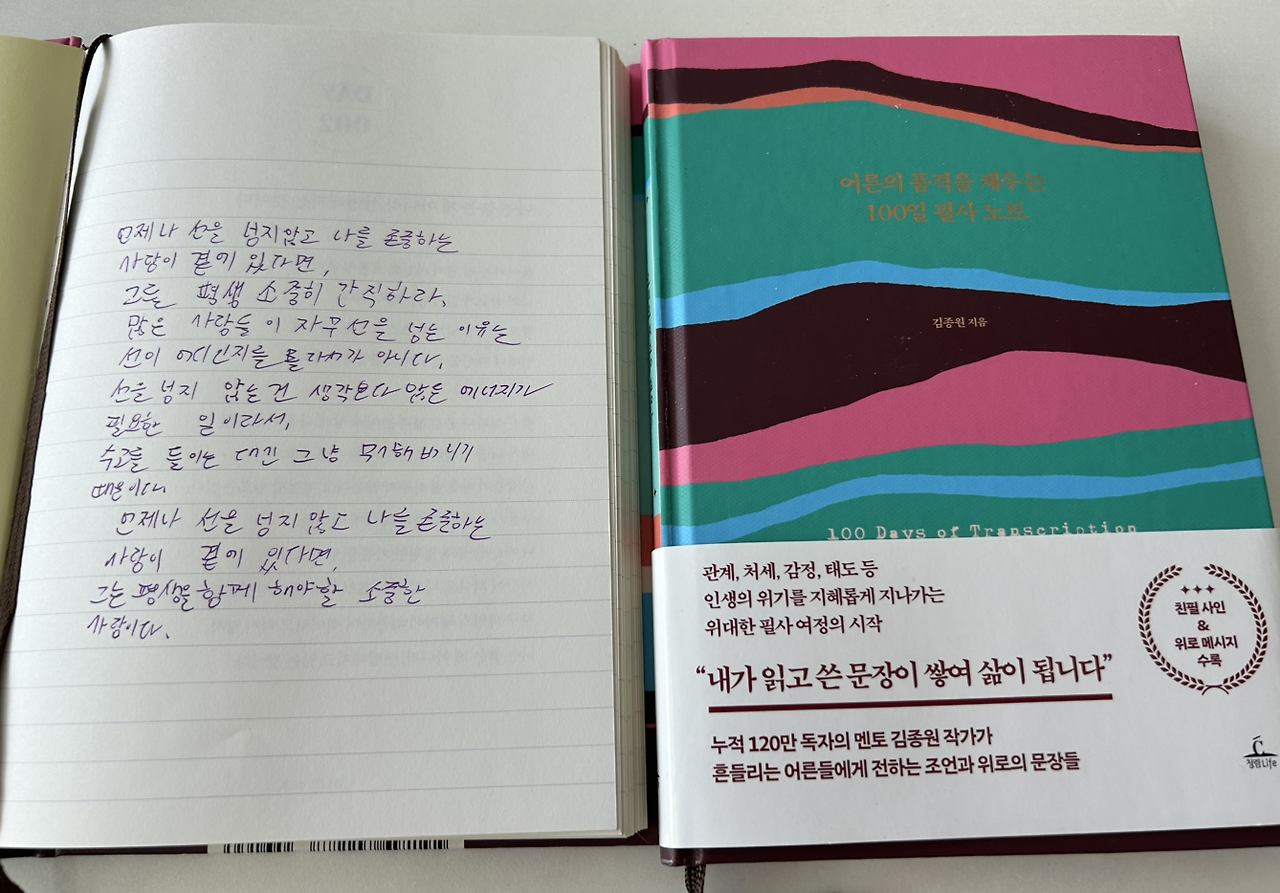 언제나 선을 넘지않고 나를 존중하는
사람이 곁에 있다면,
그를 평생 소중히 간직하라.
많은 사람들이 자꾸 선을 넘는 이유는
선이 어디인지를 몰라서가 아니다.
선을 넘지 않는건 생각보다 많은 에너지가
필요한 일이라서,
수고를 들이는 대신 그냥 무시해버리기
때문이다.
언제나 선을 넘지 않고 나를 존중하는
사람이 곁에 있다면,
그는 평생을 함께 해야할 소중한
사람이다.
어른의 품격을 채우는
100일 필사 노트
김종원 지음
100 Days of Transcription
관계, 처세, 감정, 태도 등
인생의 위기를 지혜롭게 지나가는
위대한 필사 여정의 시작
“내가 읽고 쓴 문장이 쌓여 삶이 됩니다”
누적 120만 독자의 멘토 김종원 작가가
흔들리는 어른들에게 전하는 조언과 위로의 문장들
친필 사인
&
위로 메시지
수록
청림Life
DAY
002